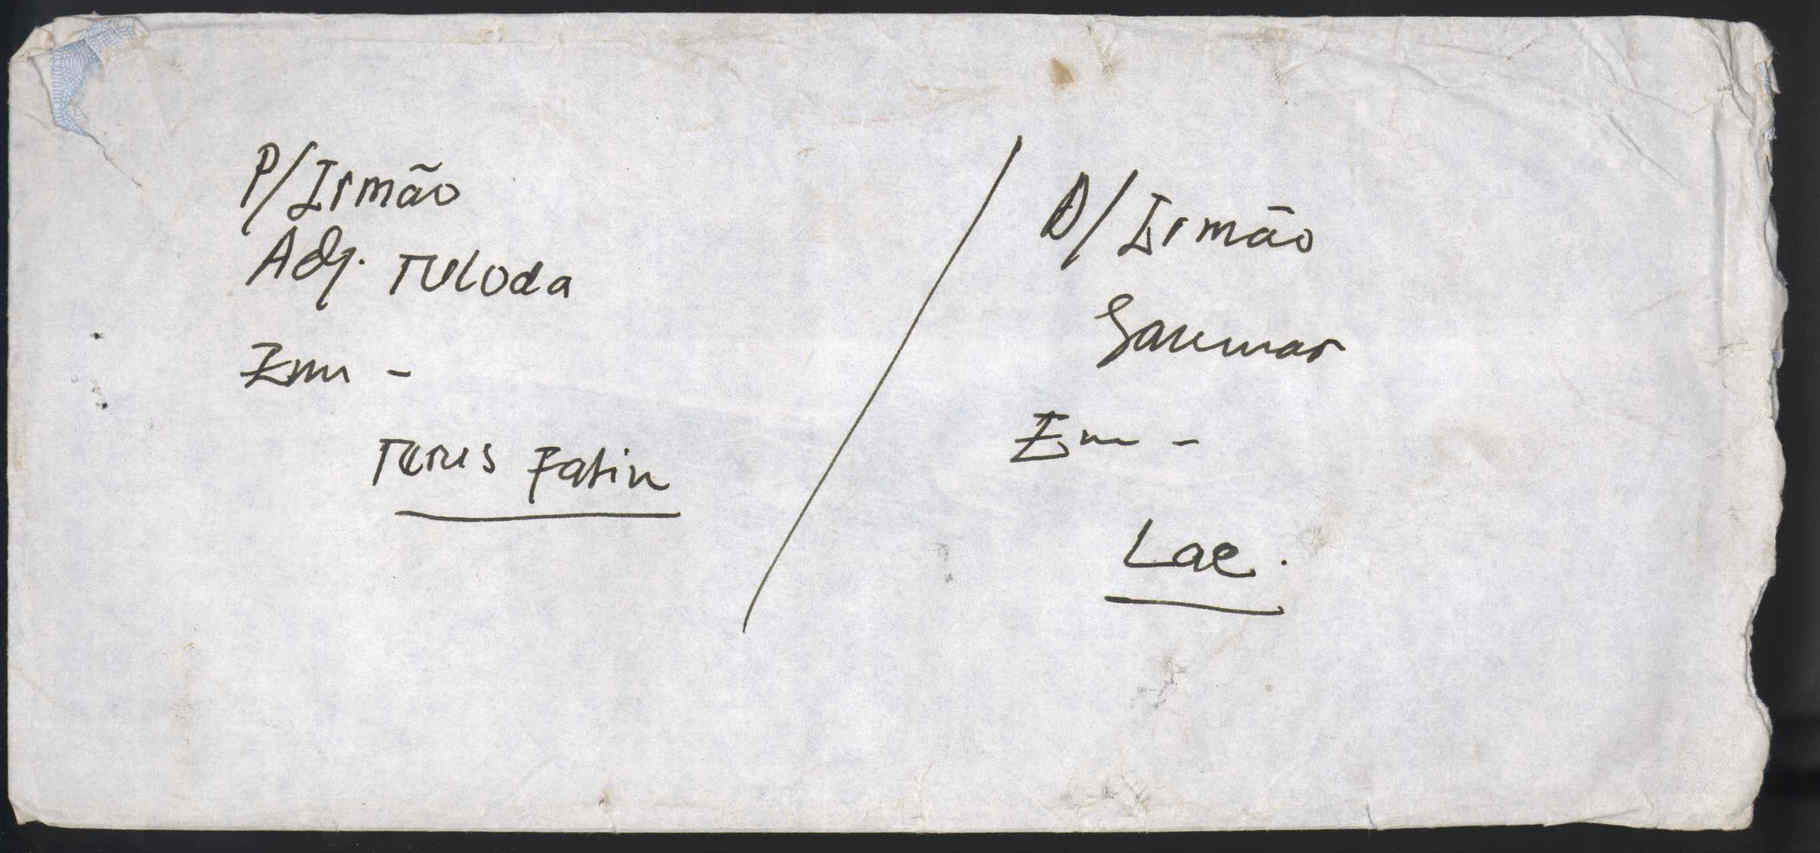 P/Irmão
Adj. TULODA
Em -
Terus Fatin
D/Irmão
Em -
Lae.